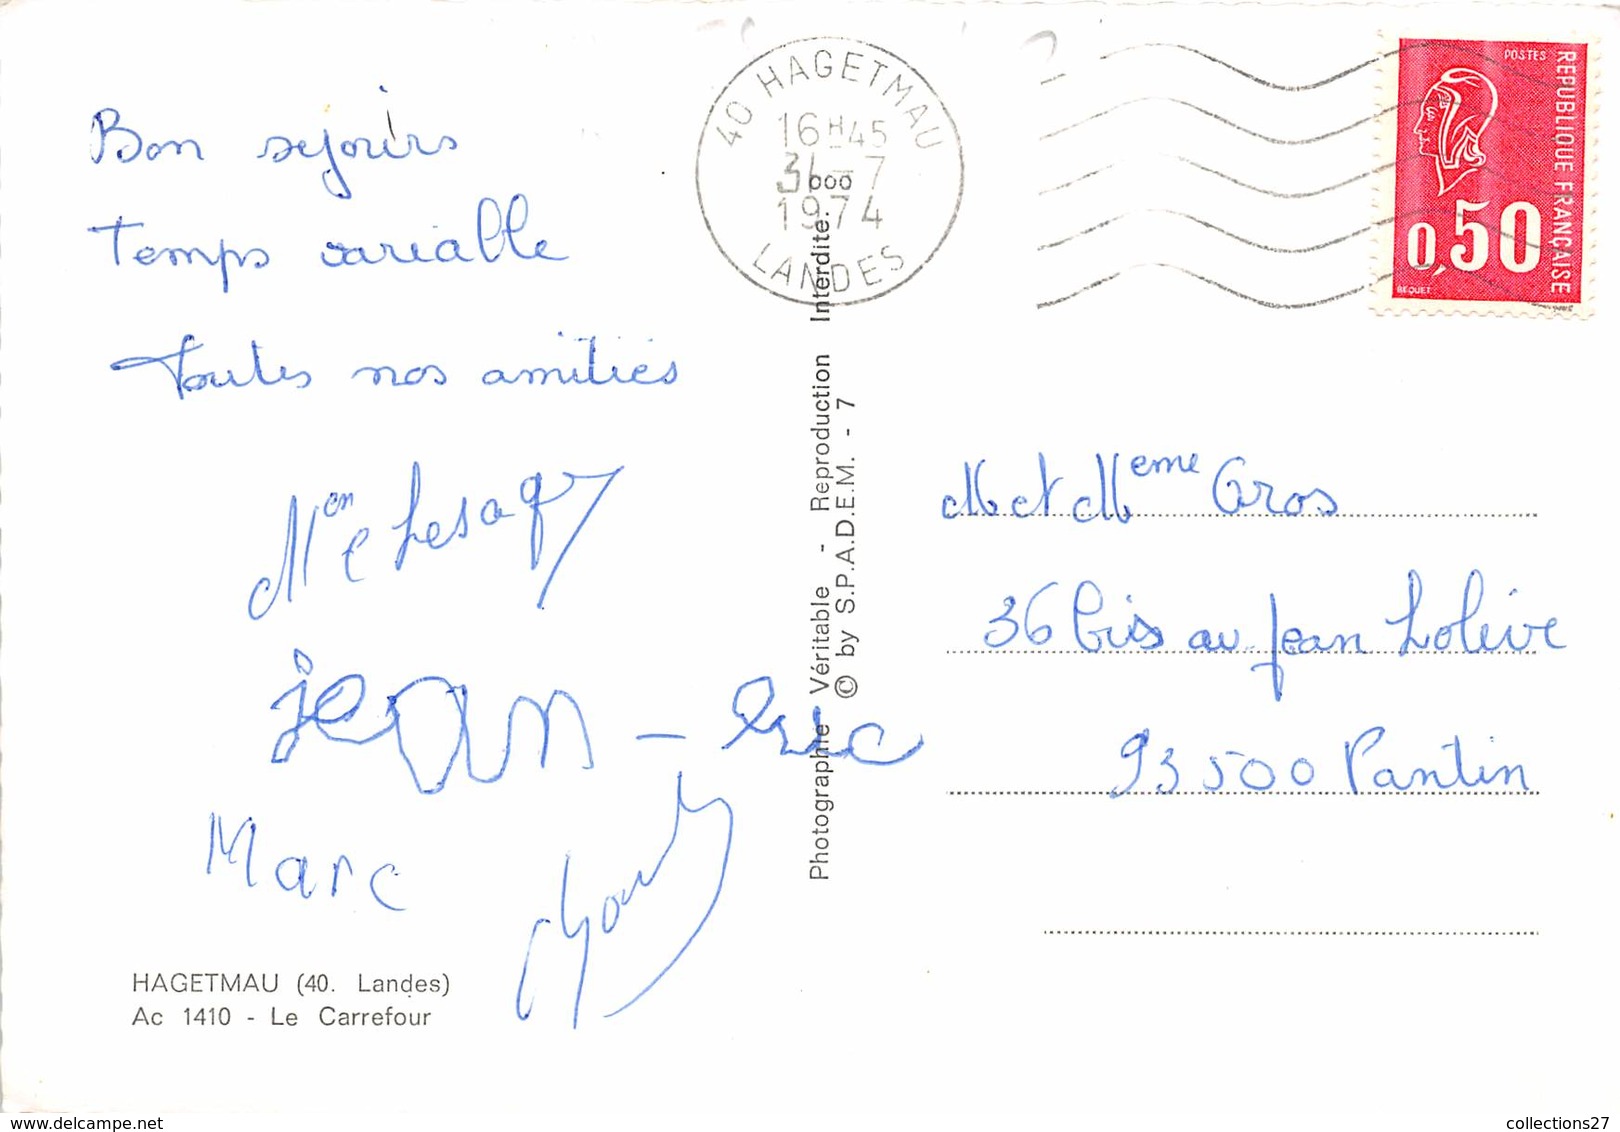 Bon sejours
Temps variable
Toutes nos amitiés
Jean - Eric
Marc
HAGETMAU (40. Landes)
Ac 1410 - Le Carrefour
Photographie Véritable - Reproduction Interdite.
© by S.P.A.D.E.M. - 7
40 HAGETMAU
16H45
31-7
1974
LANDES
POSTES
REPUBLIQUE FRANÇAISE
0,50
BEQUET
M et Meme Gros
36 bis av. Jean Lolive
93500 Pantin
collections27